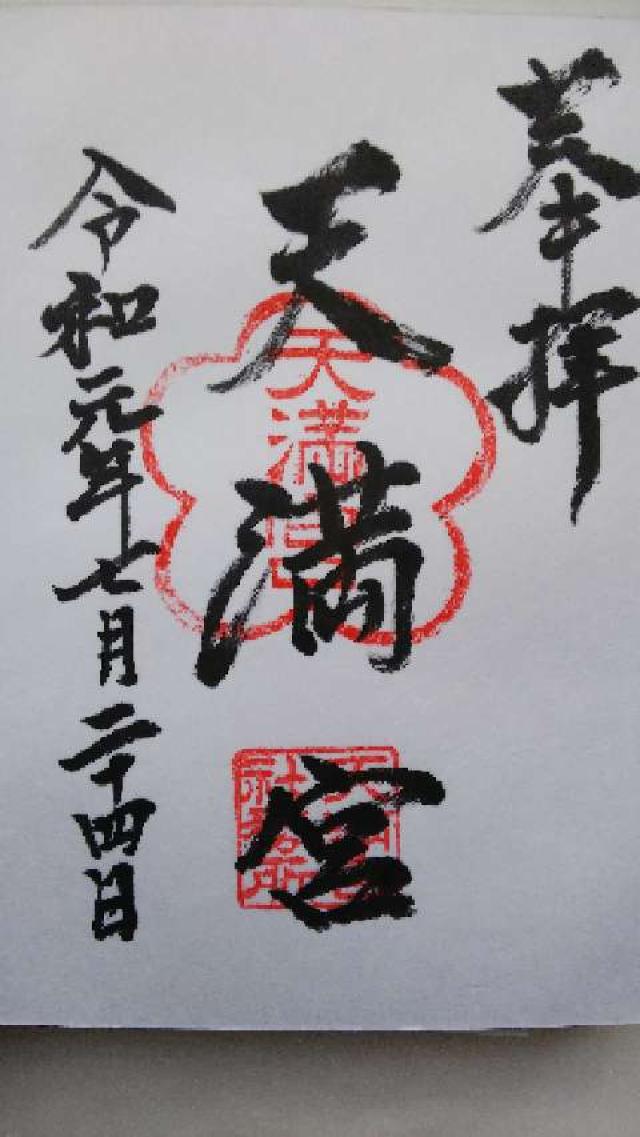 奉拝
天満宮
天満宮
令和元年七月二十四日